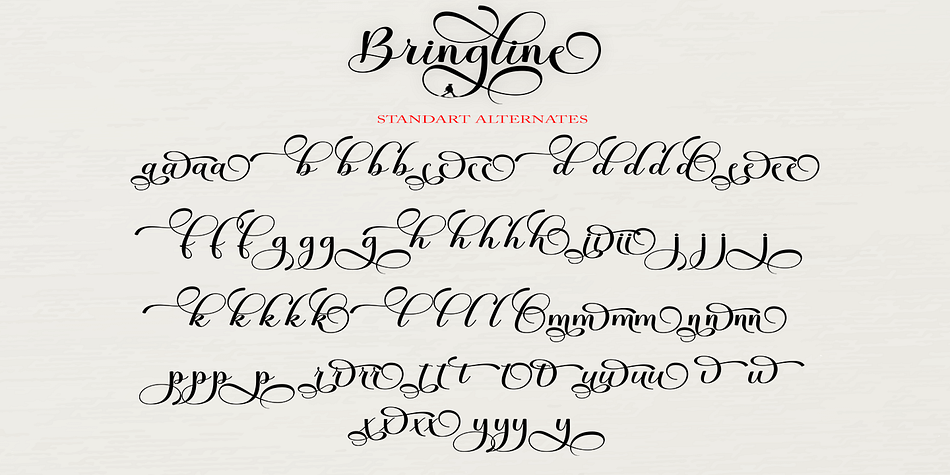 Bringline
STANDART ALTERNATES
aaaaa bbbbb ccccc ddddd eeeee
fff gggg hhhhh iiiii jjjj
kkkkk lllll mmmmm nnnnn
pppp rrrrr ttt tt uuuuu v w
xxxxx yyyy